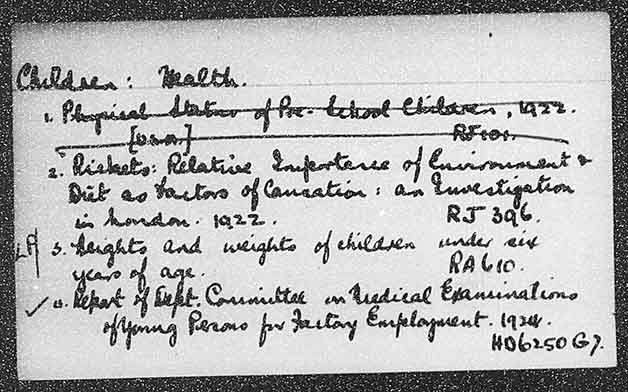 Children: Health.
1. Physical Status of Pre-School Children, 1922.
[U.S.A.] RJ 101.
2. Rickets: Relative Importance of Environment &
Diet as Factors of Causation: an Investigation
in London. 1922. RJ 396.
LP 3. Heights and weights of children under six
years of age. RA 610.
✓ 4. Report of Dept. Committee on Medical Examinations
of Young Persons for Factory Employment. 1924.
HD6250 G7.